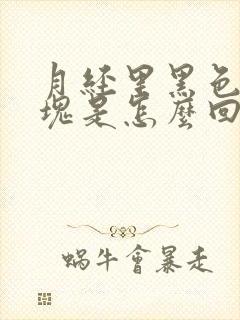 月经里黑色
块是怎麼回
蝸牛會暴走